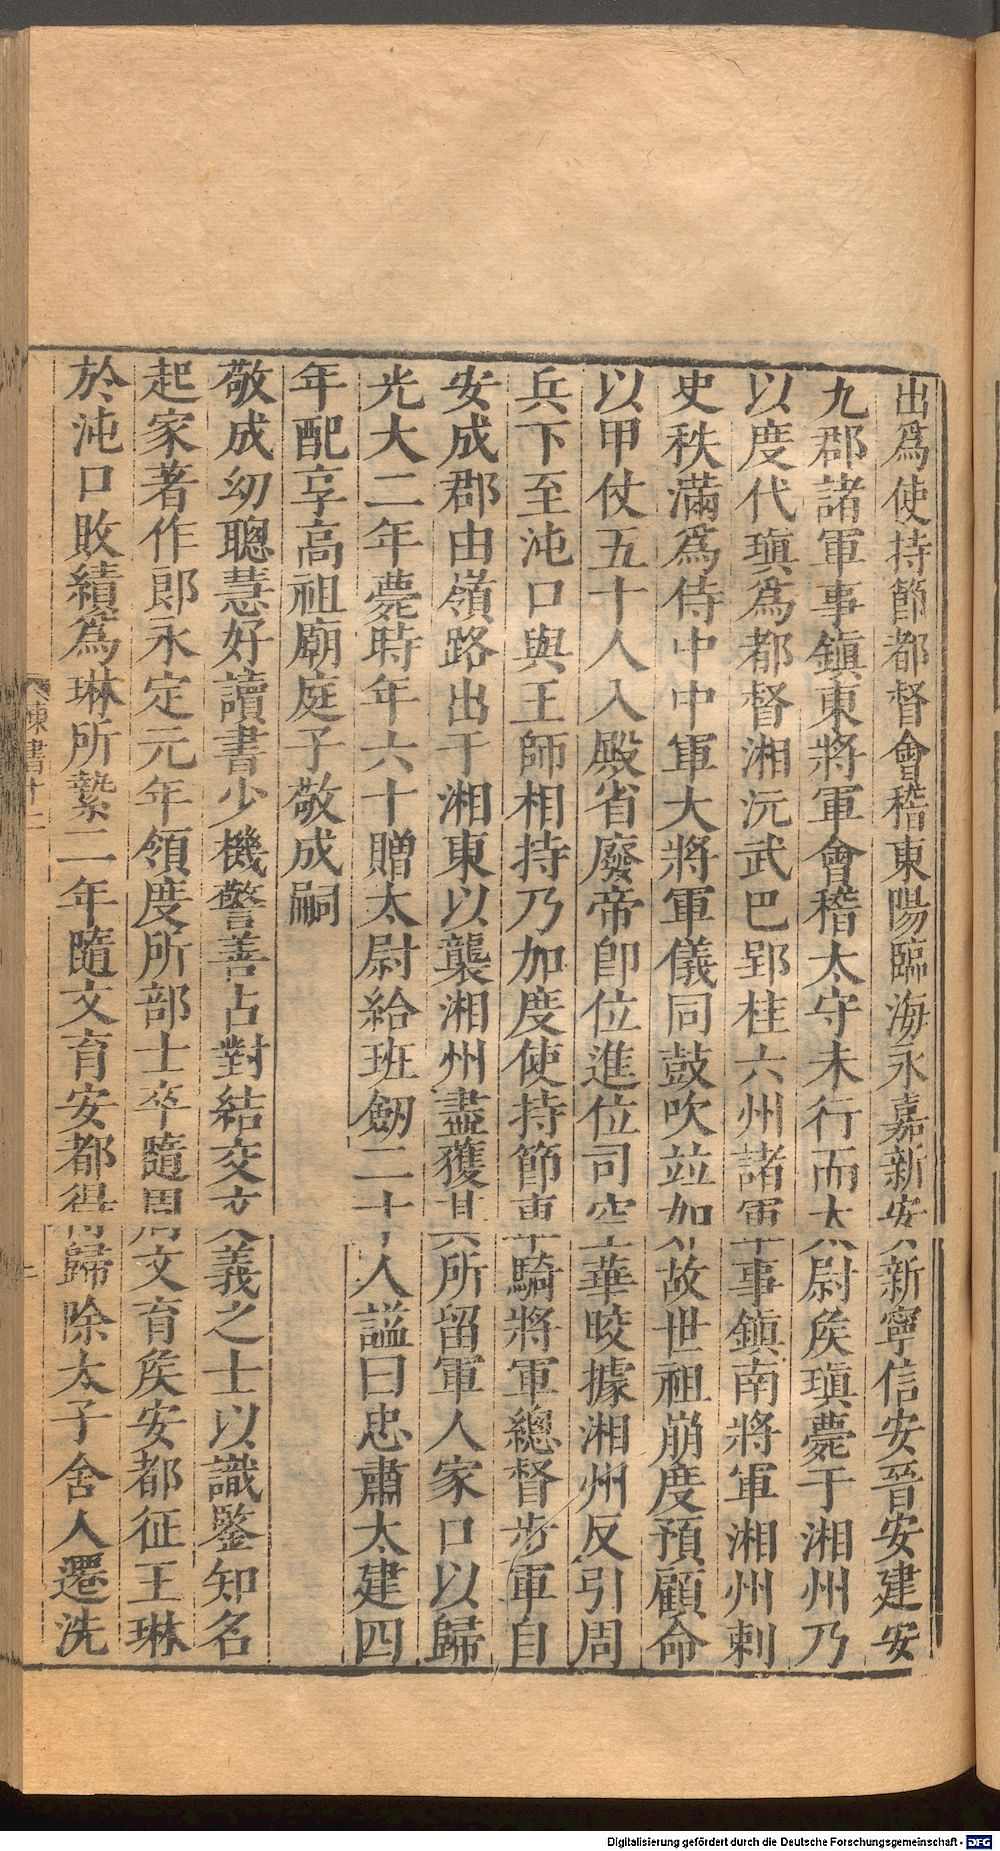 出爲使持節都督會稽東陽臨海永嘉新安新寧信安晉安建安
九郡諸軍事鎮東將軍會稽太守未行而太尉矦瑱薨于湘州乃
以度代瑱爲都督湘沅武巴郢桂六州諸軍事鎮南將軍湘州刺
史秩滿爲侍中中軍大將軍儀同鼓吹竝如故世祖崩度預顧命
以甲仗五十人入殿省廢帝卽位進位司空華皎據湘州反引周
兵下至沌口與王師相持乃加度使持節車騎將軍總督步軍自
安成郡由嶺路出于湘東以襲湘州盡獲其所留軍人家口以歸
光大二年薨時年六十贈太尉給班劒二十人謚曰忠肅太建四
年配享高祖廟庭子敬成嗣
敬成幼聰慧好讀書少機警善占對結交文義之士以識鑒知名
起家著作郎永定元年領度所部士卒隨周文育矦安都征王琳
於沌口敗績爲琳所縶二年隨文育安都得歸除太子舍人遷洗
陳書十二
Digitalisierung gefördert durch die Deutsche Forschungsgemeinschaft - DFG